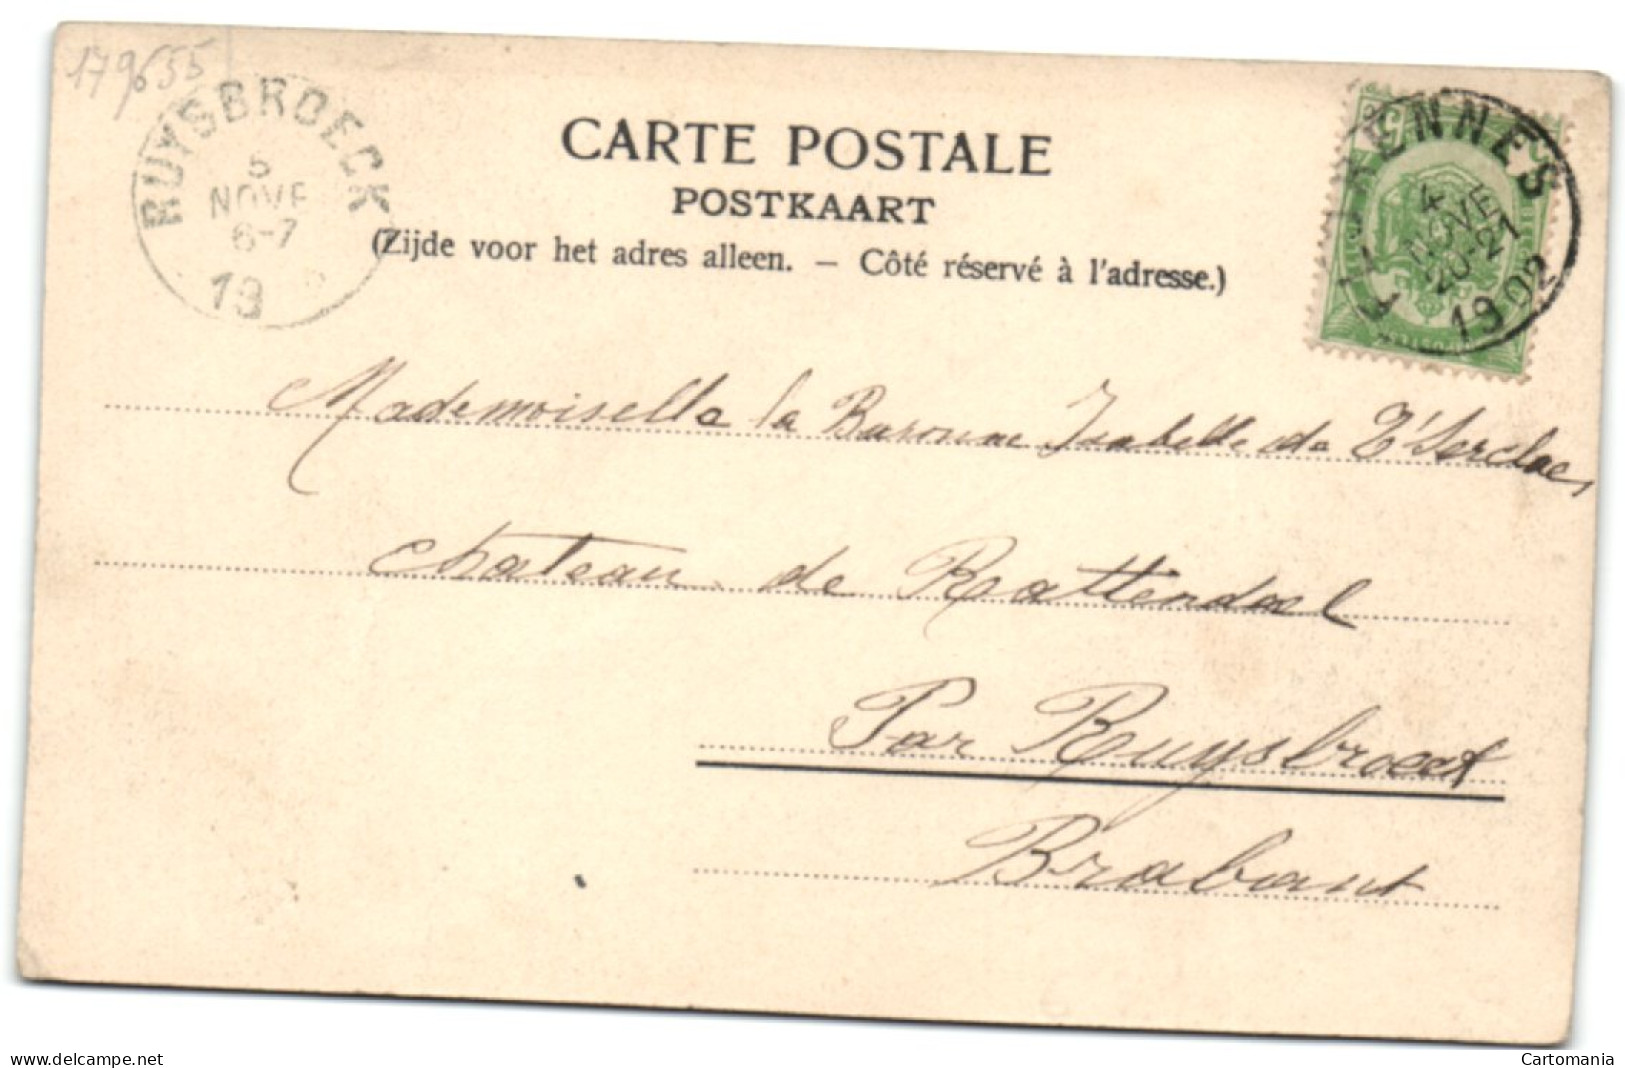 179655
RUYSBROECK
5
NOVE
6-7
19
CARTE POSTALE
POSTKAART
(Zijde voor het adres alleen. – Côté réservé à l'adresse.)
ENNES
4
NOVE
20-21
1902
Mademoiselle la Baronne Isabelle de T'Serclaes
Chateau de Rattendael
Par Ruysbroeck
Brabant
www.delcampe.net
Cartomania